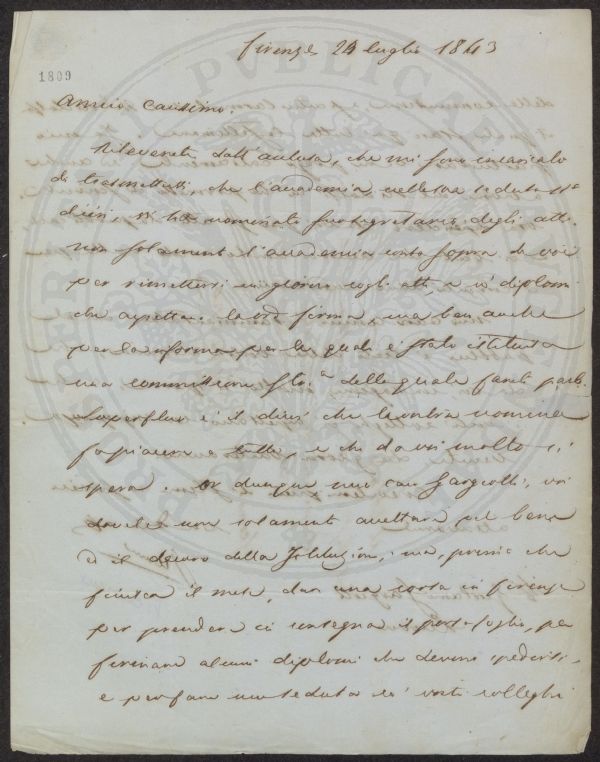 Firenze 24 luglio 1843
1809
Amico Carissimo.
Riceverete dall'acclusa, che mi fono incaricato
di trasmettervi, che l'accademia nella sua seduta
dieci vi ha nominato suo segretario degli atti.
non solamente l'accademia conta sopra di voi
per rimettersi in giorno cogli atti, e co' diplomi
che aspettano la vostra firma, ma ben anche
per la riforma per la quale è stata istituita
una commissione della quale farete parte.
Superfluo è il dirvi che la vostra nomina
fa piacere a tutti, e che da voi molto si
spera. Or dunque mio caro Gargiolli, voi
dovete non solamente accettare pel bene
e il decoro della Istituzione, ma, prima che
finisca il mese, dare una corsa in firenze
per prendere in consegna il portafoglio, per
firmare alcuni diplomi che devono spedirsi,
e per fare una seduta co' vostri colleghi
PUBLICA
PROSPERITA